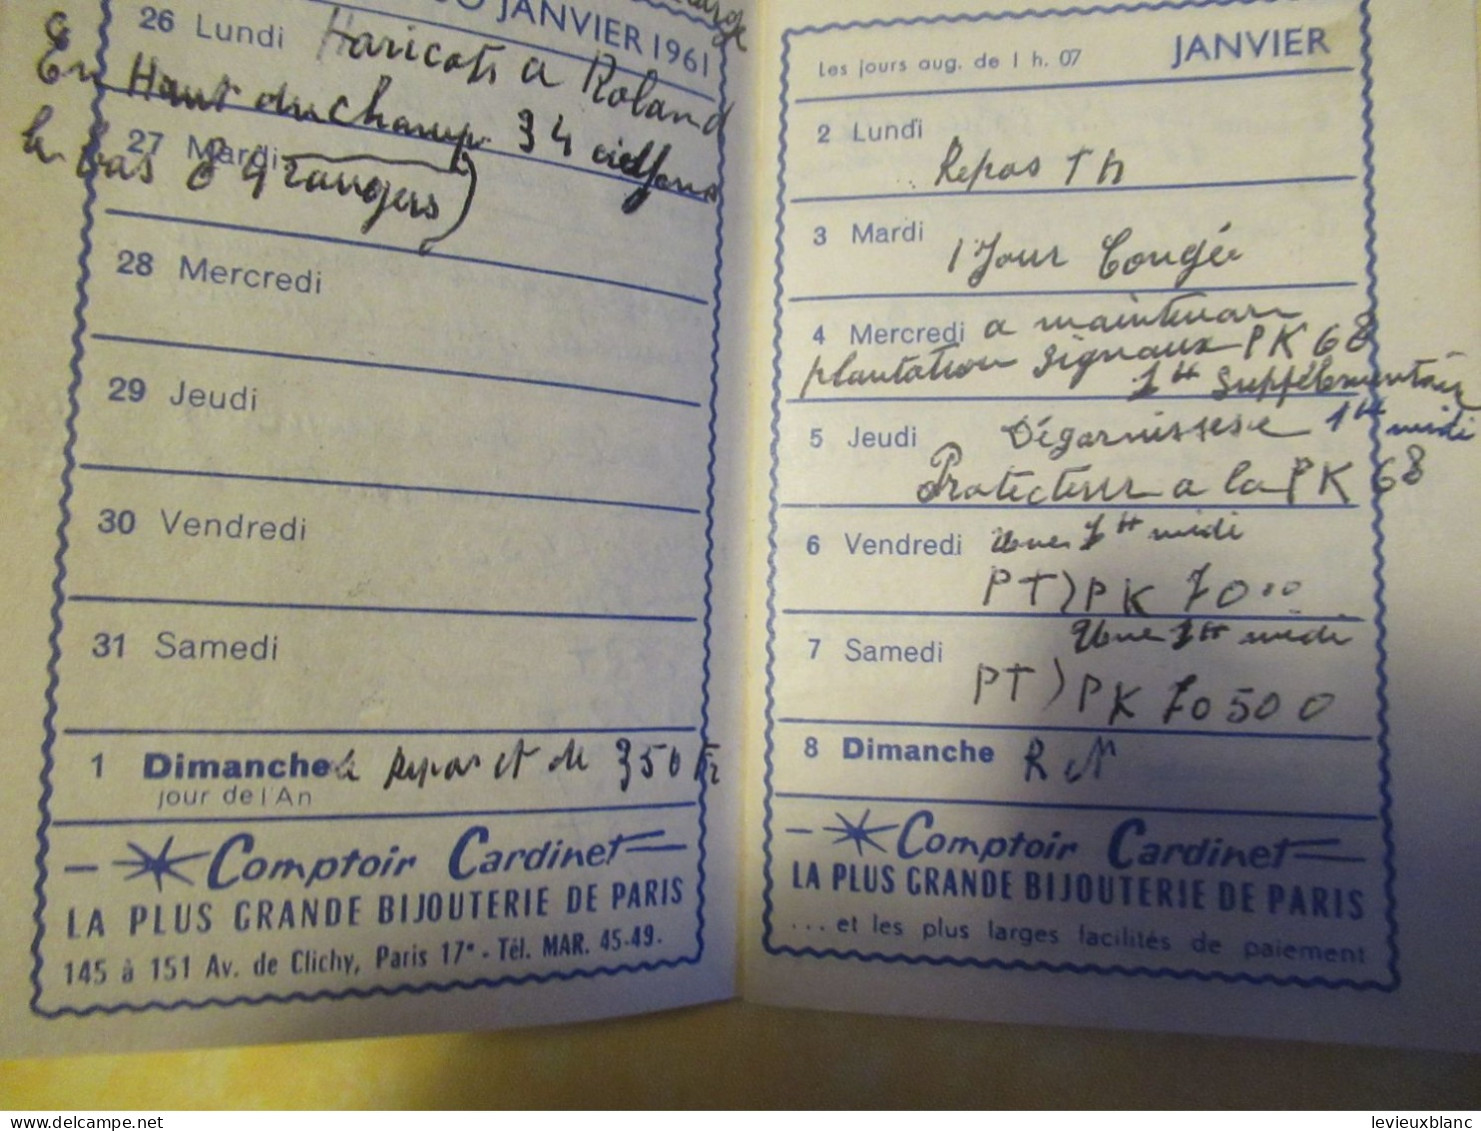 JANVIER 1961
26 Lundi Haricots a Roland
En Haut du champ 34
27 Mardi
la bas 8 Grangers
28 Mercredi
29 Jeudi
30 Vendredi
31 Samedi
1 Dimanche le repas et de 350 Fr
jour de l'An
Comptoir Cardinet
LA PLUS GRANDE BIJOUTERIE DE PARIS
145 à 151 Av. de Clichy, Paris 17e - Tél. MAR. 45-49.
JANVIER
Les jours aug. de 1 h. 07
2 Lundi
Repos Th
3 Mardi
1 Jour Congée
4 Mercredi a maintenan
plantation signaux PK 68
1 H Supplémentair
5 Jeudi Dégarnissese 1 H midi
Protecteur a la PK 68
6 Vendredi Une 1 H midi
PT) PK 70 00
Une 1 H midi
7 Samedi
PT) PK 70 500
8 Dimanche R N
Comptoir Cardinet
LA PLUS GRANDE BIJOUTERIE DE PARIS
... et les plus larges facilités de paiement
levieuxblanc
www.delcampe.net